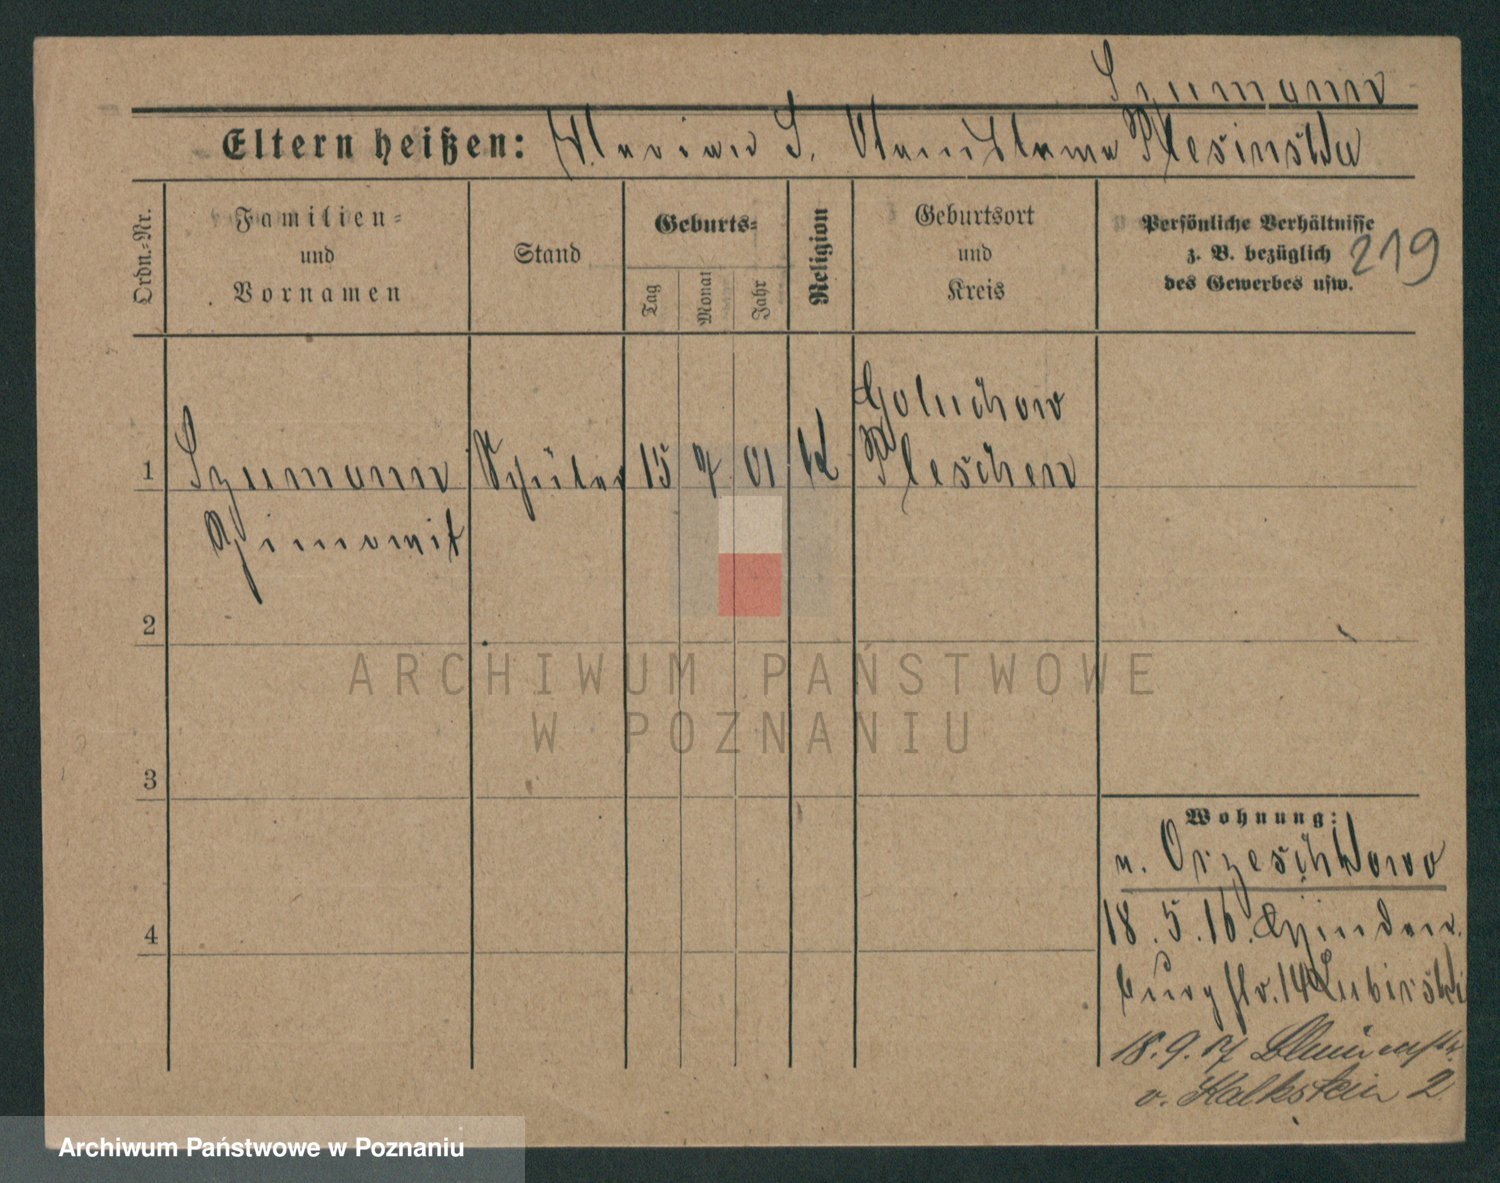 Szumann
Eltern heißen: Marian S. Stanislawa Plesinska
Ordn.-Nr.
Familien-
und
Vornamen
Stand
Geburts-
Tag
Monat
Jahr
Religion
Geburtsort
und
Kreis
Persönliche Verhältnisse
z. B. bezüglich
des Gewerbes usw.
219
1 Szumann Schüler 15 7 01 K Goluchow
Pleschen
Zimowit
2
3
4
Wohnung:
n. Orzeschkowo
18.5.16. Hinden
burgstr. 14 Lubirski
18.9.17 Blumenstr.
v. Kalkstein 2
ARCHIWUM PAŃSTWOWE
W POZNANIU
Archiwum Państwowe w Poznaniu